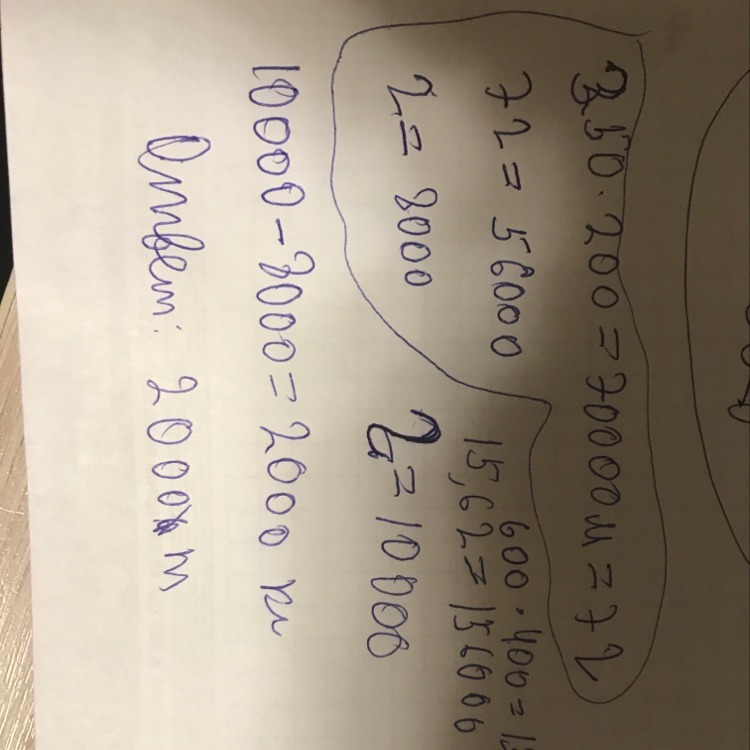 350·200=70000м=7г
7г=56000
г=8000
600·400=1
15,6г=156000
г=10000
10000-8000=2000 м
Ответ: 2000 м